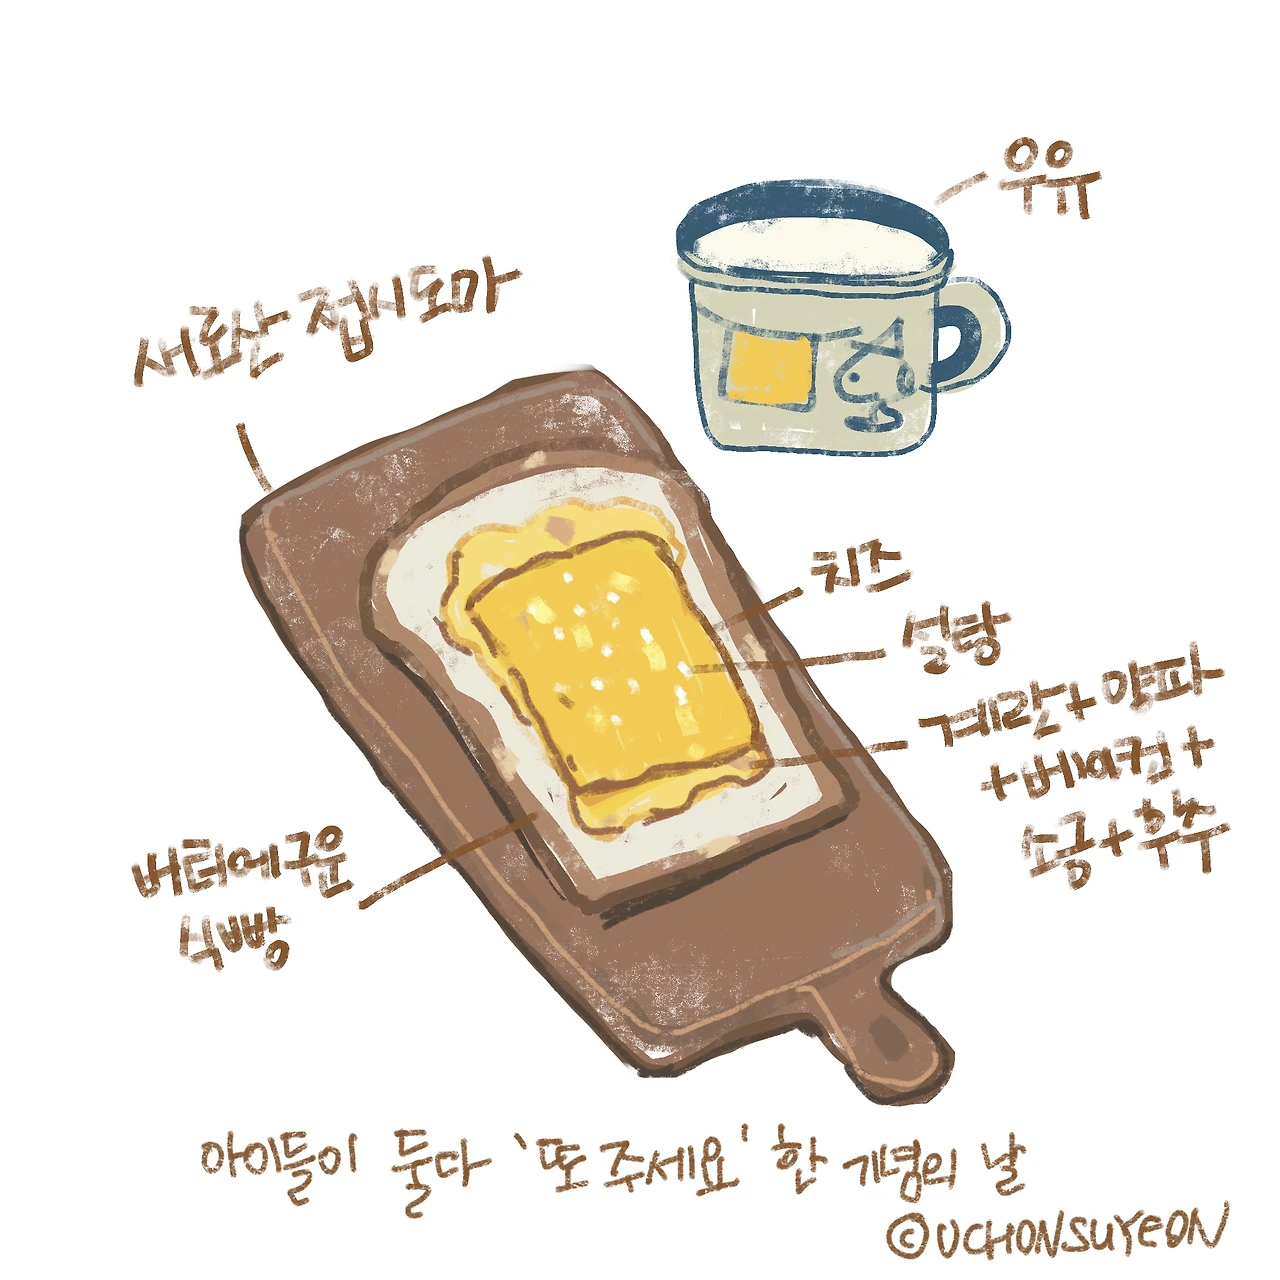 우유
새로산 접시도마
치즈
설탕
계란+양파
+베이컨+
소금+후추
버터에구운
식빵
아이들이 둘다 '또 주세요' 한 기념의 날
©UCHONSUYEON